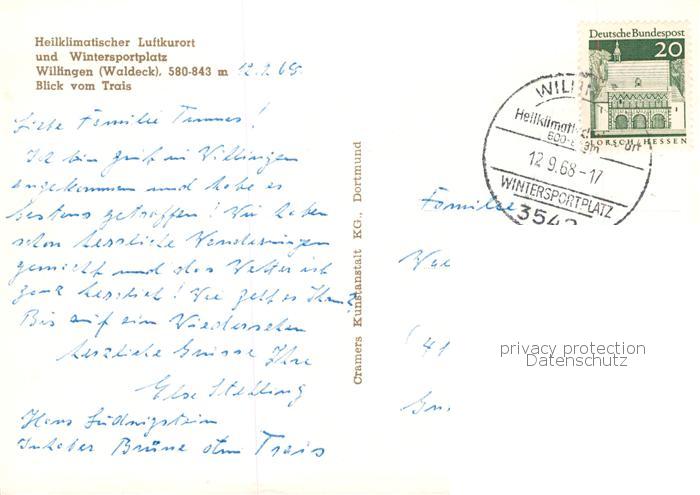 Heilklimatischer Luftkurort
und Wintersportplatz
Willingen (Waldeck), 580-843 m
Blick vom Trais
12.9.68
Liebe Familie
Ich bin gut in Willingen
angekommen und habe es
bestens getroffen! Wir haben
schon herrliche Wanderungen
gemacht und das Wetter ist
ganz herrlich! Wie geht es Ihnen?
Bis auf ein Wiedersehen
herzliche Grüsse Ihre
Else Stehling
Haus Ludwigstein
Inhaber Brüne Trais
Cramers Kunstanstalt KG., Dortmund
Deutsche Bundespost
20
LORSCH/HESSEN
Heilklimatisch
12.9.68-17
WINTERSPORTPLATZ
3542
Familie
privacy protection
Datenschutz